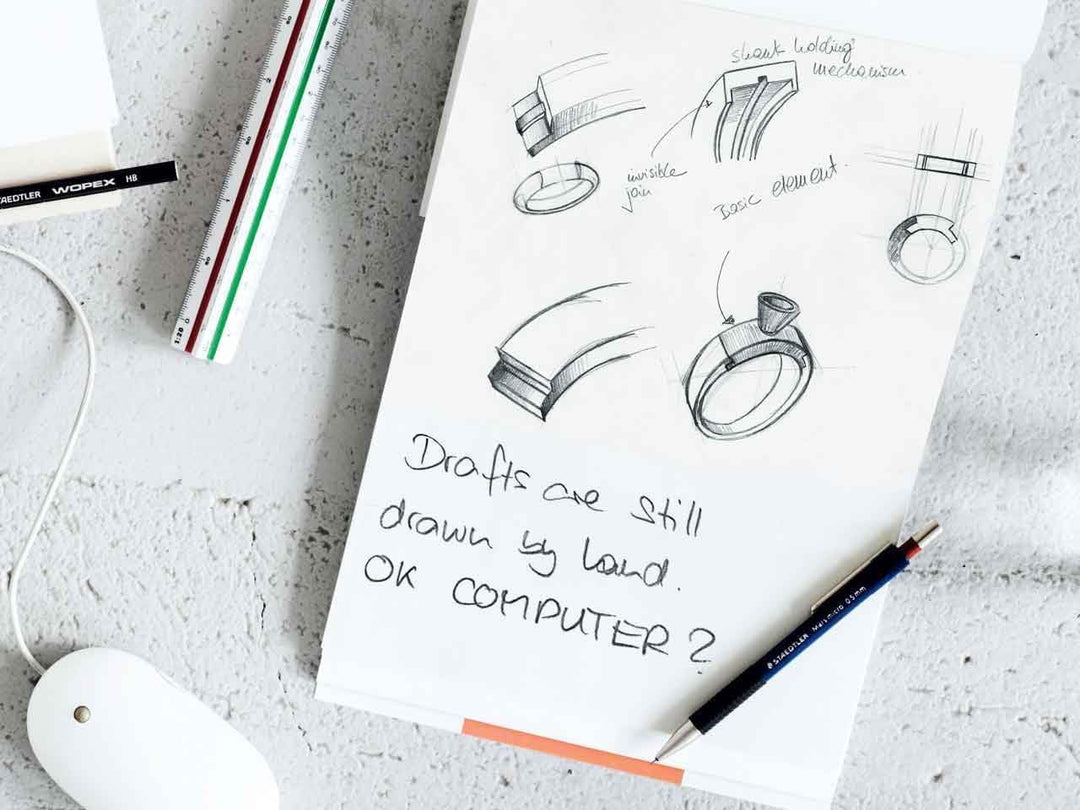 shank holding
mechanism
invisible
join
Basic element
Drafts are still
drawn by hand.
OK COMPUTER?
STAEDTLER WOPEX HB
1:20 0
STAEDTLER Mars micro 0.5mm